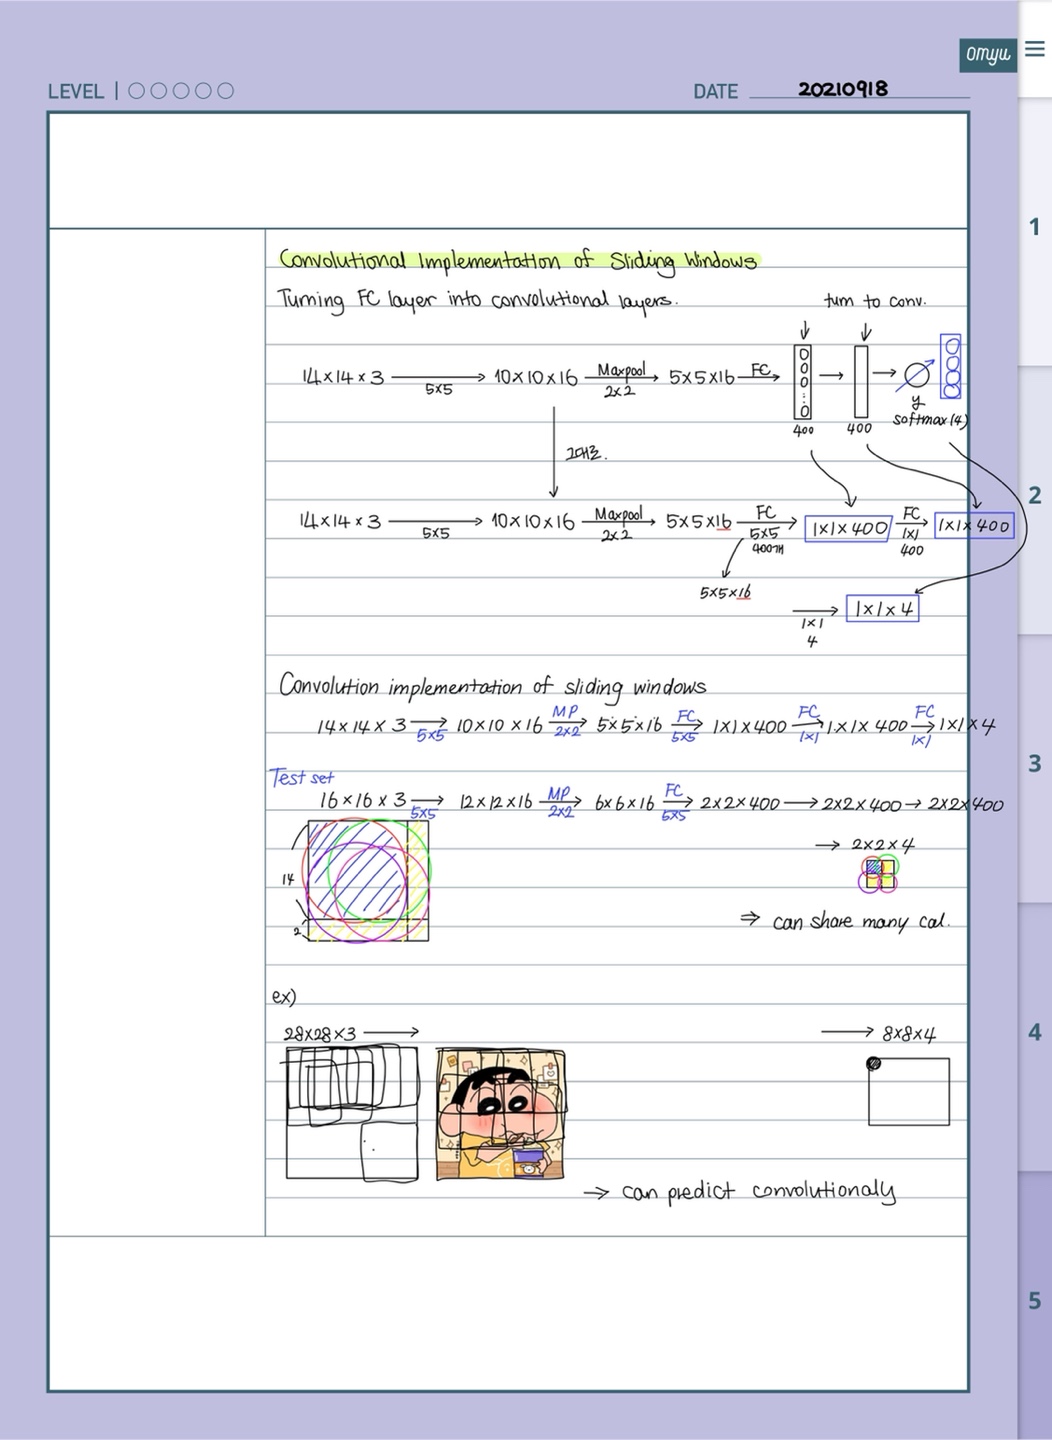 omyu
LEVEL | ○○○○○ DATE 20210918
1
2
3
4
5
Convolutional Implementation of Sliding Windows
Turning FC layer into convolutional layers.
turn to conv.
14×14×3 → 10×10×16 Maxpool → 5×5×16 FC →
5×5 2×2
400 400 y
softmax(4)
14×14×3 → 10×10×16 Maxpool → 5×5×16 FC → 1×1×400 FC → 1×1×400
5×5 2×2 5×5 1×1
400개 400
5×5×16
→ 1×1×4
1×1
4
Convolution implementation of sliding windows
14×14×3 → 10×10×16 MP → 5×5×16 FC → 1×1×400 FC → 1×1×400 FC → 1×1×4
5×5 2×2 5×5 1×1 1×1
Test set
16×16×3 → 12×12×16 MP → 6×6×16 FC → 2×2×400 → 2×2×400 → 2×2×400
5×5 2×2 5×5
→ 2×2×4
14
2
⇒ can share many cal.
ex)
28×28×3 → → 8×8×4
→ can predict convolutionaly